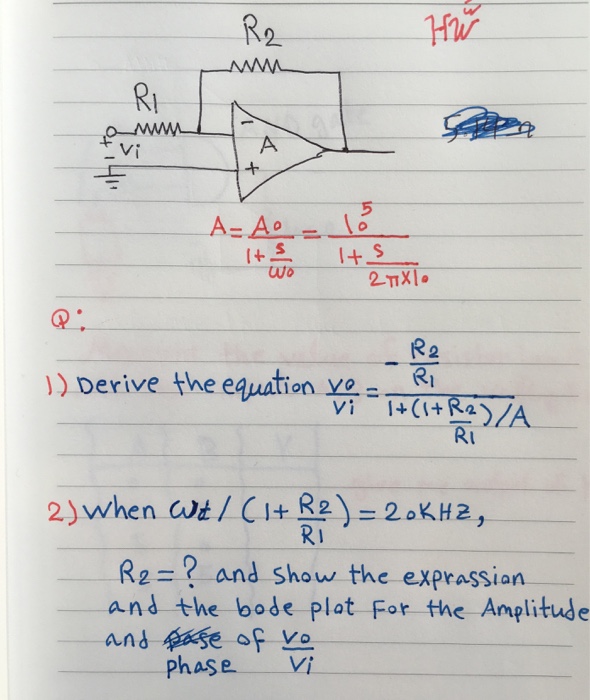 R2
HW
R1
+
Vi
-
-
A
+
A = A0 / (1 + s/ω0) = 10^5 / (1 + s/(2π×10))
Q:
1) Derive the equation vo/vi = (-R2/R1) / (1+(1+R2/R1)/A)
2) When ωt / (1 + R2/R1) = 20KHZ,
R2 = ? and show the exprassion
and the bode plot For the Amplitude
and phase of vo/vi